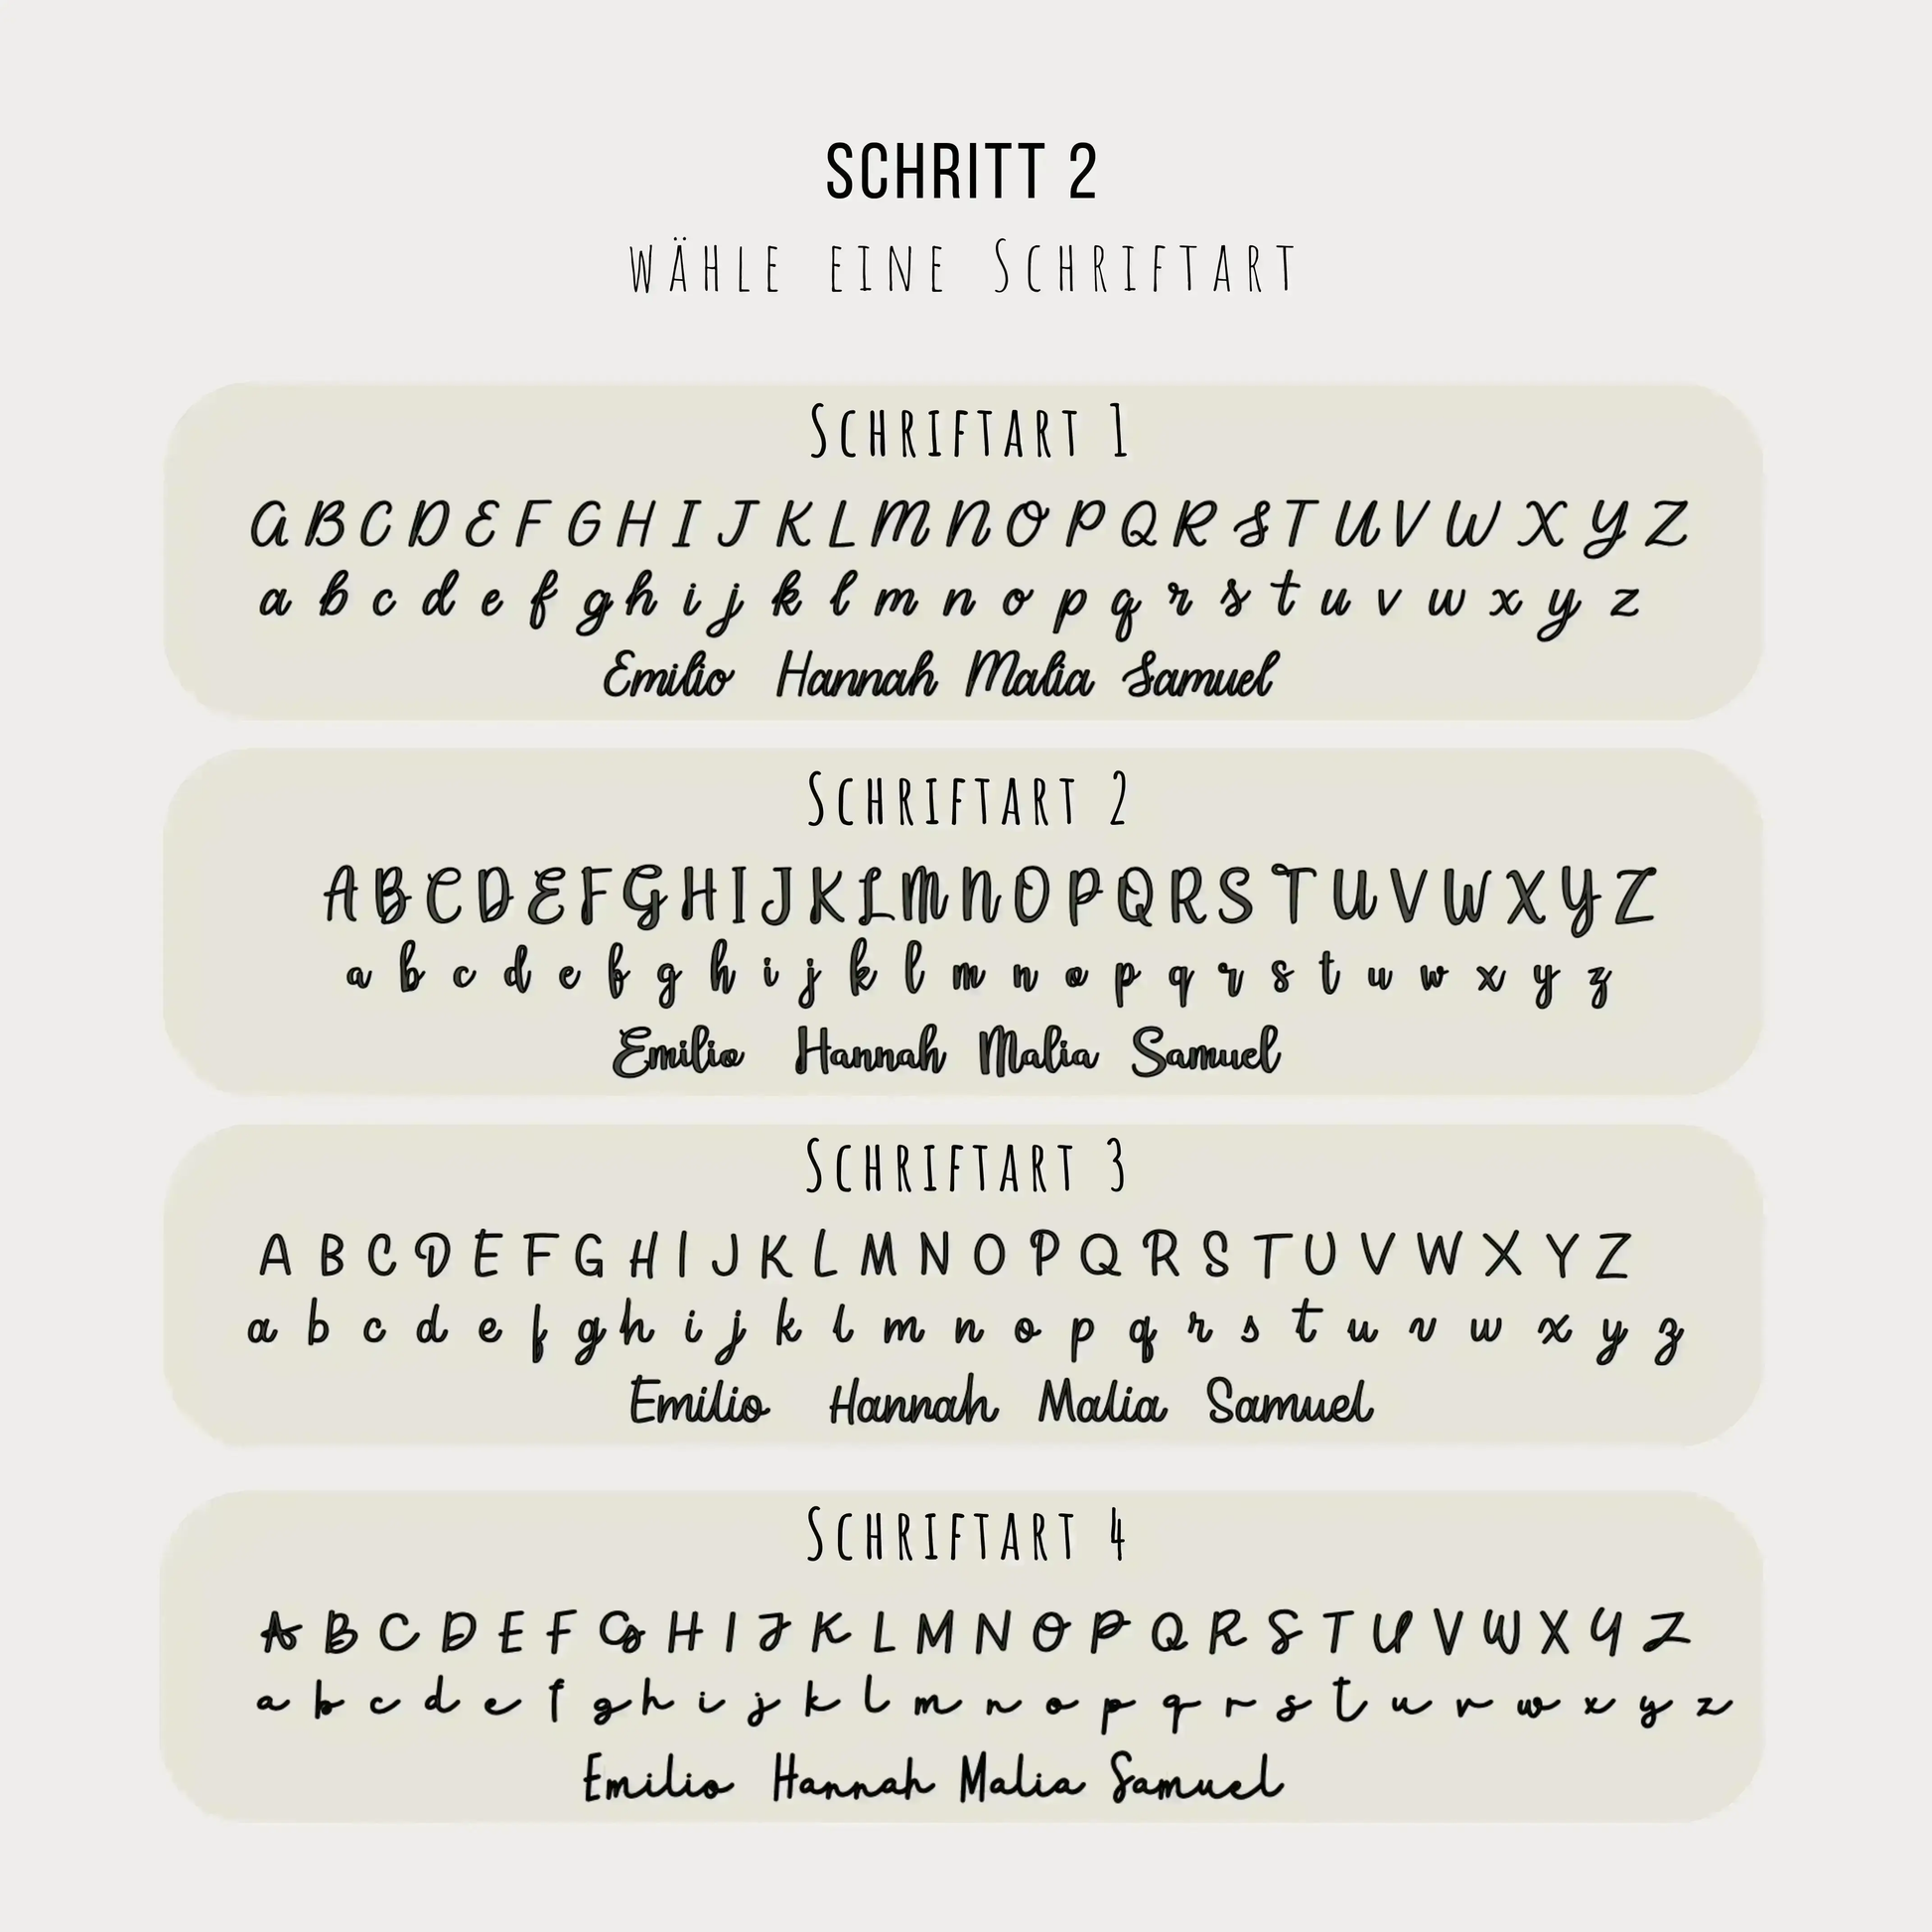 SCHRITT 2
WÄHLE EINE SCHRIFTART
SCHRIFTART 1
A B C D E F G H I J K L M N O P Q R S T U V W X Y Z
a b c d e f g h i j k l m n o p q r s t u v w x y z
Emilio Hannah Malia Samuel
SCHRIFTART 2
A B C D E F G H I J K L M N O P Q R S T U V W X Y Z
a b c d e f g h i j k l m n o p q r s t u w x y z
Emilio Hannah Malia Samuel
SCHRIFTART 3
A B C D E F G H I J K L M N O P Q R S T U V W X Y Z
a b c d e f g h i j k l m n o p q r s t u v w x y z
Emilio Hannah Malia Samuel
SCHRIFTART 4
A B C D E F G H I J K L M N O P Q R S T U V W X Y Z
a b c d e f g h i j k l m n o p q r s t u v w x y z
Emilio Hannah Malia Samuel